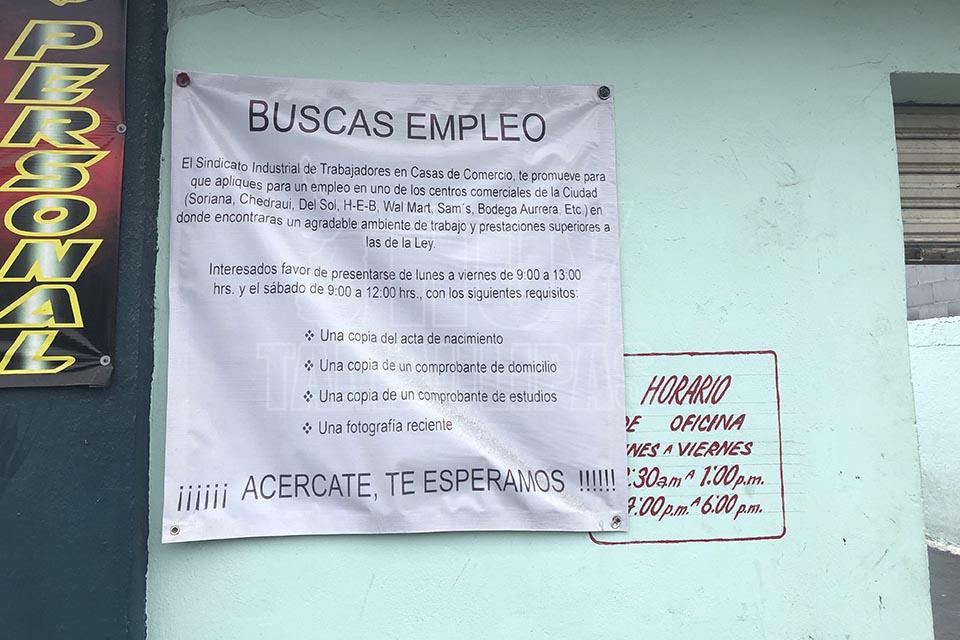 PERSONAL
BUSCAS EMPLEO
El Sindicato Industrial de Trabajadores en Casas de Comercio, te promueve para
que apliques para un empleo en uno de los centros comerciales de la Ciudad
(Soriana, Chedraui, Del Sol, H-E-B, Wal Mart, Sam´s, Bodega Aurrera, Etc.) en
donde encontraras un agradable ambiente de trabajo y prestaciones superiores a
las de la Ley.
Interesados favor de presentarse de lunes a viernes de 9:00 a 13:00
hrs. y el sábado de 9:00 a 12:00 hrs., con los siguientes requisitos:
❖ Una copia del acta de nacimiento
❖ Una copia de un comprobante de domicilio
❖ Una copia de un comprobante de estudios
❖ Una fotografía reciente
¡¡¡¡¡¡ ACERCATE, TE ESPERAMOS !!!!!!
HORARIO
DE OFICINA
NES A VIERNES
:30 a.m A 1:00 p.m.
4:00 p.m. A 6:00 p.m.